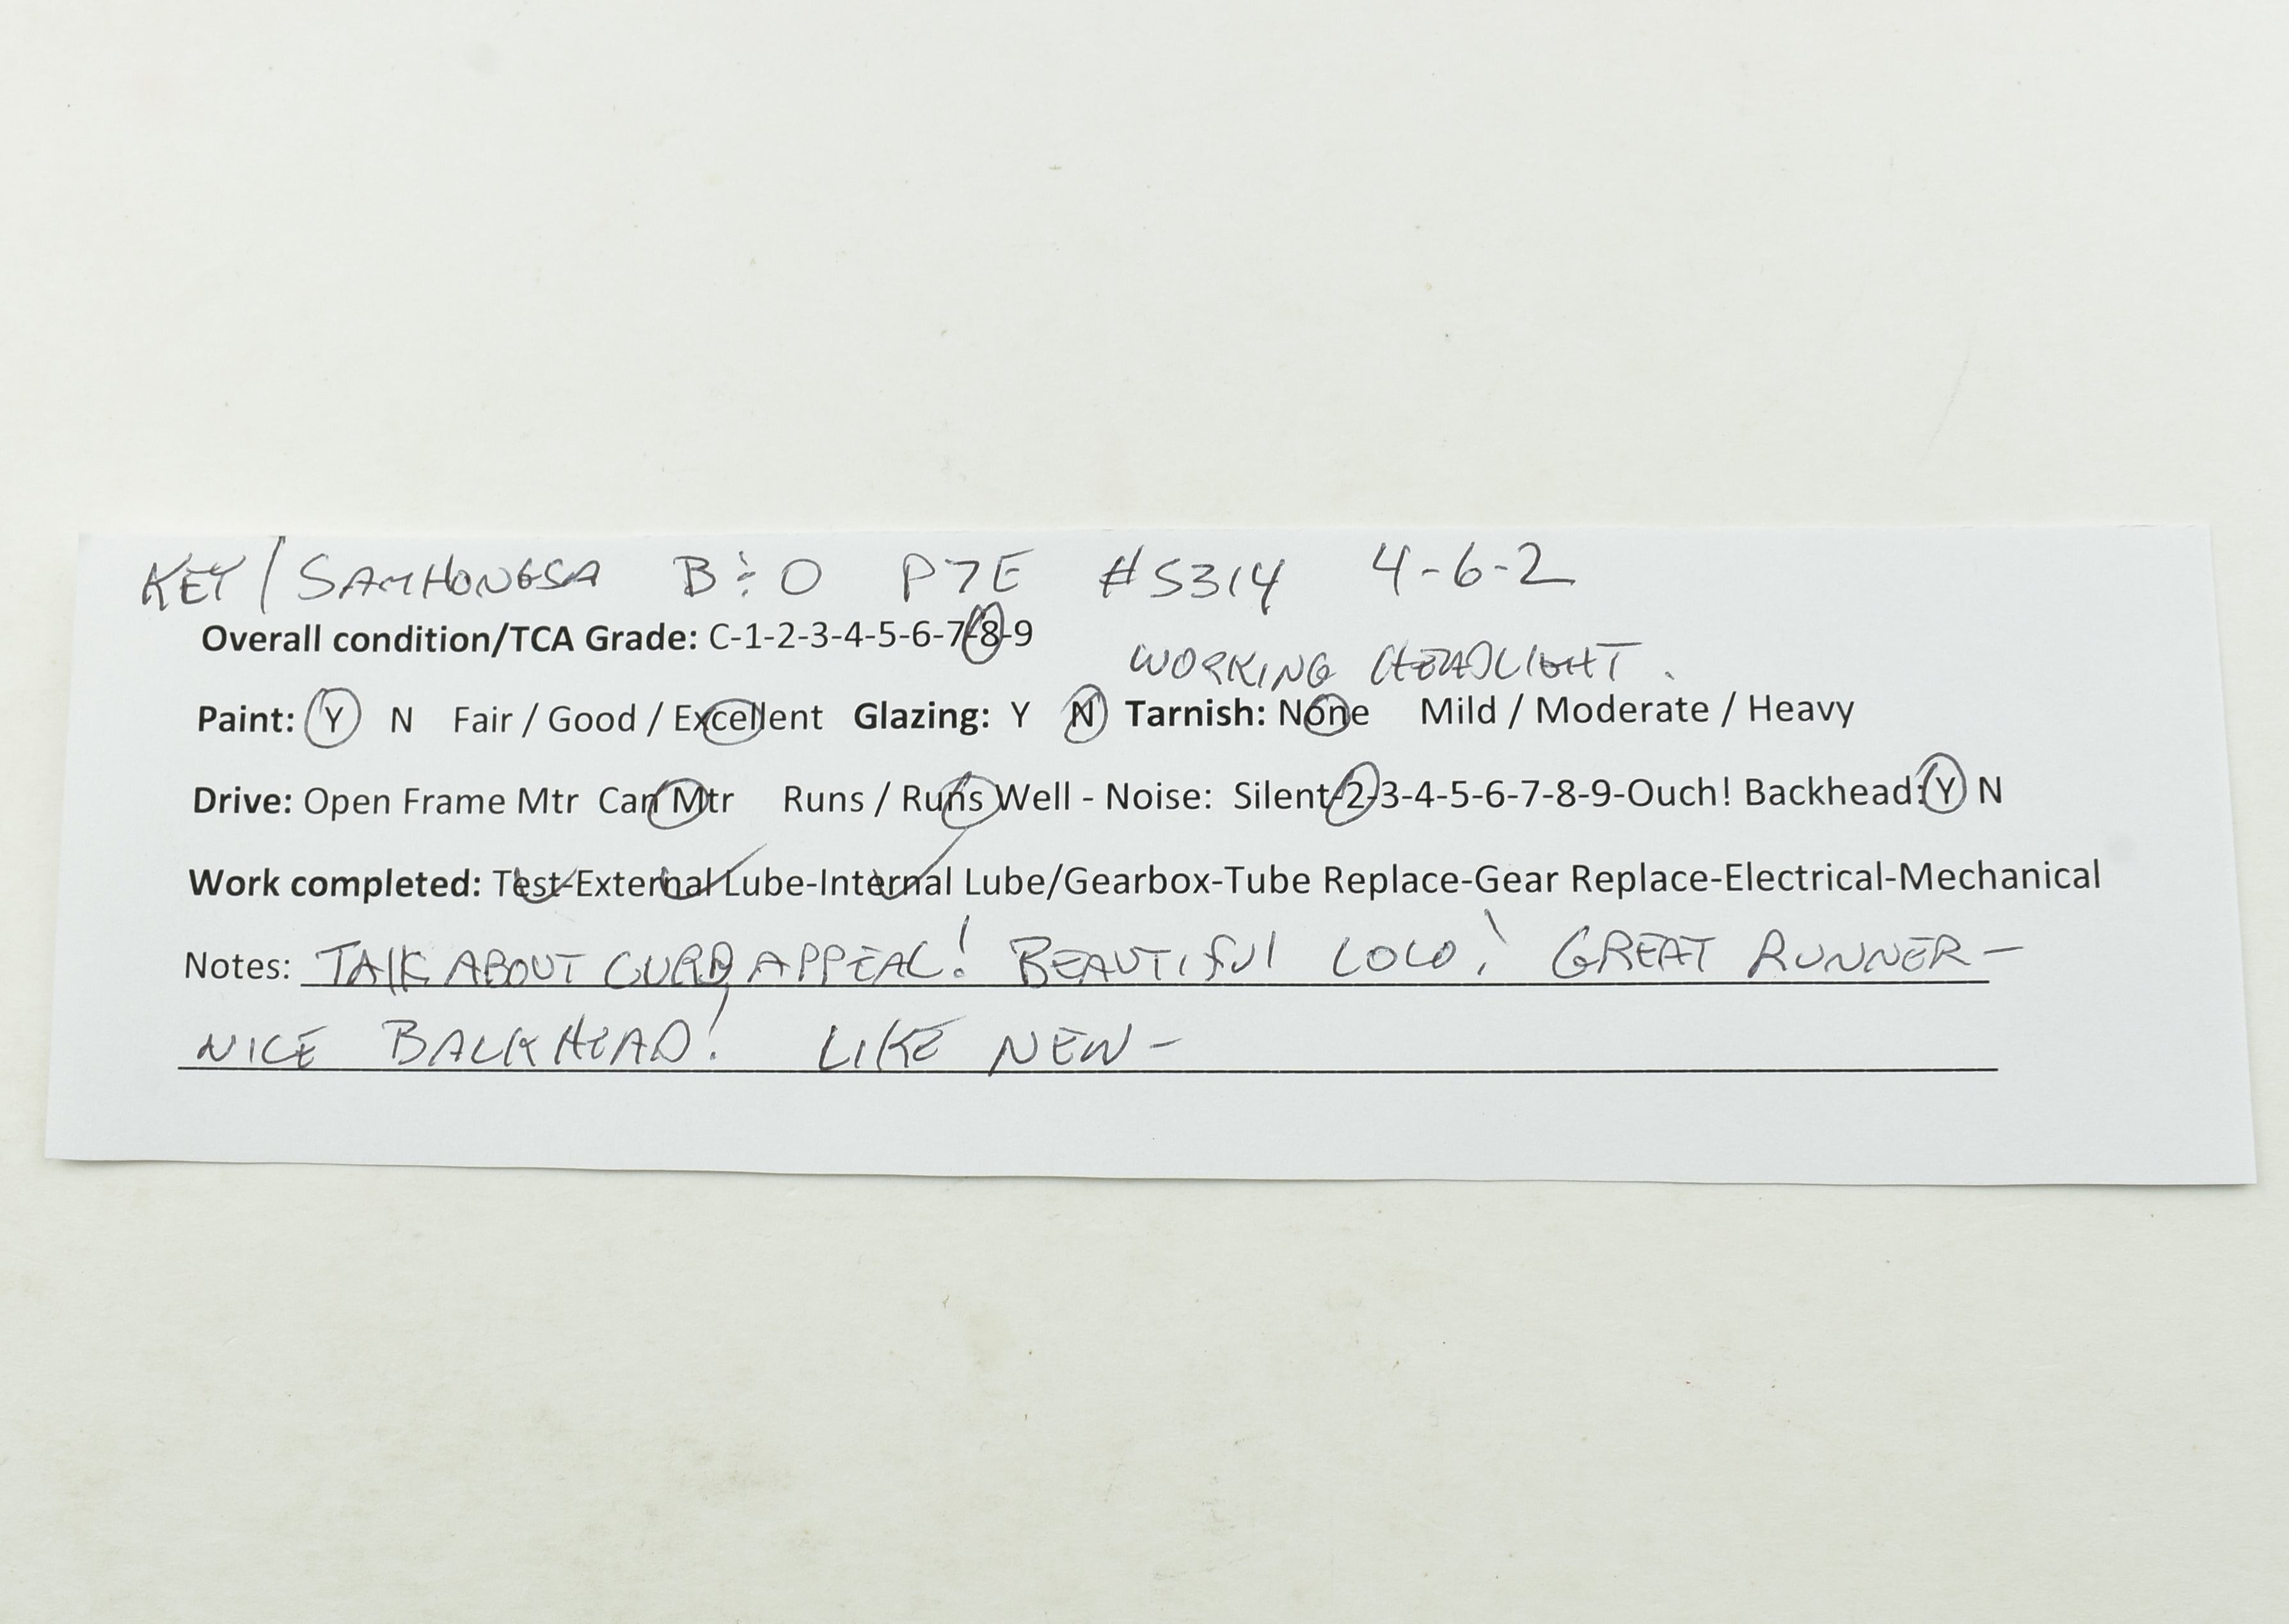 KEY/SAMHONGSA B&O P7E #5314 4-6-2
Overall condition/TCA Grade: C-1-2-3-4-5-6-7-8-9
WORKING HEADLIGHT.
Paint: Y N Fair / Good / Excellent Glazing: Y N Tarnish: None Mild / Moderate / Heavy
Drive: Open Frame Mtr Can Mtr Runs / Runs Well - Noise: Silent-2-3-4-5-6-7-8-9-Ouch! Backhead: Y N
Work completed: Test-External Lube-Internal Lube/Gearbox-Tube Replace-Gear Replace-Electrical-Mechanical
Notes: TALK ABOUT CURB APPEAL! BEAUTIFUL LOCO! GREAT RUNNER-
NICE BACKHEAD! LIKE NEW-